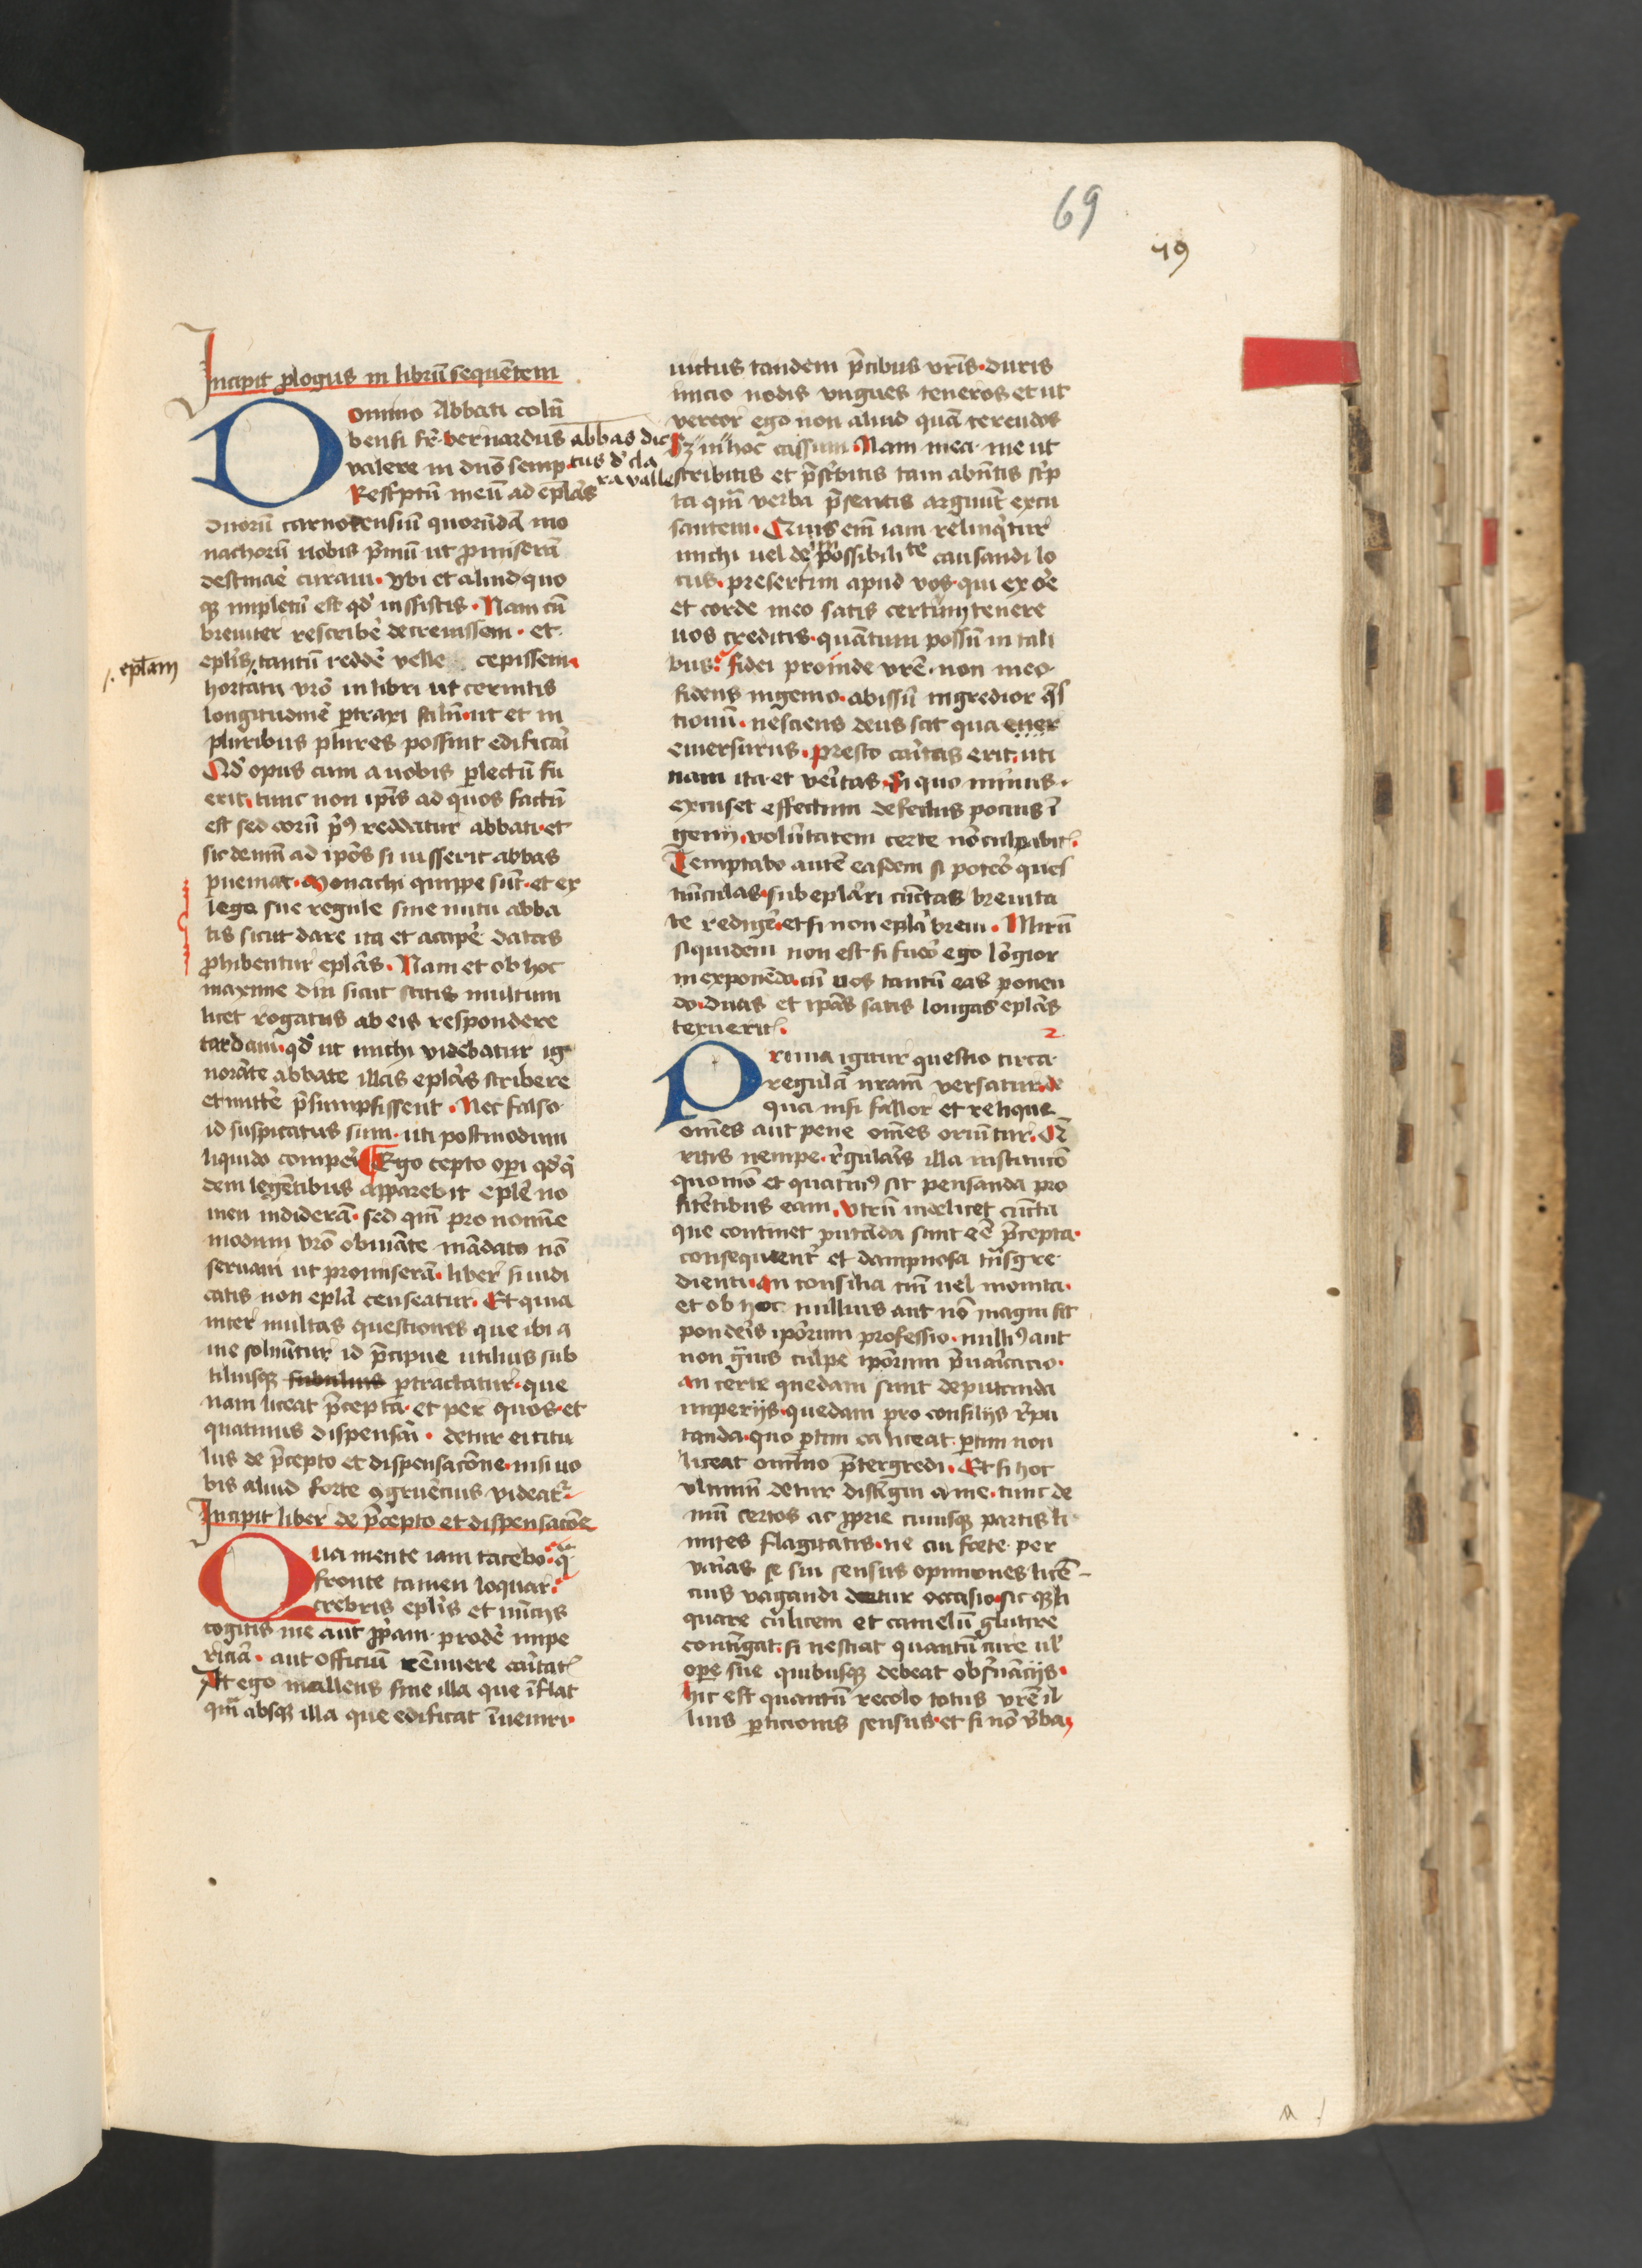 69
79
Incipit ꝓlogus in librū sequētem
Domino Abbati colū
bensi fr̄ bernardus abbas dic
valere in dn̄o semp. tus d' cla
Resc'ptū meū ad ep̄las ra valle
duorū carnotensiū quorūdā mo
nachorū uobis p̄mū ut ꝓmiserā
destinare curaui. Vbi et aliud quo
qꝫ impletū est qd' inssistis. Nam cū
breuiter rescribē decreuissem. et
ep̄lis tantū reddē velle cepissem
/. ep̄lam
hortatu vrō in libri ut cernitis
longitudinē ptraxi stilū. ut et in
pluribus plures possint edificari
Qd' opus cum a uobis plectū fu
erit, tunc non ip̄is ad quos factū
est sed eorū pr̄9 reddatur abbati. et
sic demū ad ip̄os si iusserit abbas
pueniat. Monachi quippe sūt. et ex
lege sue regule sine nutu abba
tis sicut dare ita et accipē datas
ꝓhibentur ep̄las. Nam et ob hoc
maxime diu sicut scitis multum
licet rogatus ab eis respondere
tardaui. qd' ut michi videbatur ig
norāte abbate illas ep̄las scribere
et mittē p̄sumpsissent. Nec falso
id suspicatus sum. uti postmodum
liquido comperi Ego cepto op̄i qd' q'
dem legētibus apparebit ep̄le no
men indiderā. sed qm̄ pro nomīe
modum vrō obuiāte mādato nō
seruaui ut promiserā. liber si iudi
catis non ep̄la censeatur. Et quia
inter multas questiones que ibi a
me soluūtur id p̄cipue utilius sub
tiliusqꝫ subtilius ptractatur. que
nam liceat p̄cepta. et per quos. et
quatinus dispensari. detur ei titu
lus de p̄cepto et dispensacōne. nisi uo
bis aliud forte ꝯgruēcius videatr
Incipit liber de p̄cepto et dispensacōe
Qua mente iam tacebo. q̄
fronte tamen loquar.
crebris ep̄lis et nūcijs
cogitis me aut ꝓpam prodē impe
riciā. aut officiū rēnuere caritat'
At ego mallens sine illa que īflat
qm̄ absqꝫ illa que edificat īueniri.
uictus tandem p̄cibus vrīs. duris
inicio nodis vngues teneros et ut
vereor ego non aliud quā terendos
sꝫ in hoc cassum. Nam mea me ut
scribitis et p̄sc'bitis tam abūtis sc'p
ta qm̄ verba p̄sentis arguūt excu
santem. Quis em̄ iam relinqtur
michi uel de impossibilite causandi lo
cus. presertim apud vos. qui ex ore
et corde meo satis certum tenere
uos creditis. quātum possū in tali
bus. fidei proinde vrē. non meo
fidens ingenio. abissū ingredior q̄s
tionū. nesciens deus scit qua ener
emersurus. presto caritas erit. uti
nam ita et veritas. si quo minus.
excuset effectum defectus pocius ī
genij, volūtatem certe nō culpabit'.
Temptabo autē easdem si potero ques
tiūculas. sub ep̄lari cūctas breuita
te redigē. et si non ep̄la breui. Mirū
siquidem non est si fuero ego lōgior
in exponēdo. cū uos tantū eas ponen
do. duas et ip̄as satis longas ep̄las
texuerit'.
2
Prima igitur questio circa
regulā nram̄ versatur. de
qua nisi fallor et relique
om̄es aut pene om̄es oriūtur. Q̄
ritis nempe. rēgularis illa institucō
quomō et quatin9 sit pensanda pro
fitētibus eam. Vtrū in&licet cūcta
que continet putāda sunt eē p̄cepta.
consequent' et dampnosa trāsgre
dienti. an consilia tm̄ uel monita.
et ob hoc nullius aut nō magni sit
ponderis ip̄orum professio. nulli9 aut
non ḡuis culpe ip̄orum p̄uaricacio.
an certe quedam sunt deputanda
imperijs. quedam pro consilijs rēpu
tanda. quo ptim ea liceat. ptim non
liceat omīno p̄tergredi. Et si hoc
vltimū detur distīgui a me. tunc de
mū certos ac ꝓprie cuiusqꝫ partis li
mites flagitatis. ne cui forte per
varias se sui sensus opiniones licē-
cius vagandi detur occasio. sic qꝫ li
quare culicem et camelū glutire
contigat. si nesciat quantū cure ul'
opere sue quibusqꝫ debeat obs'uācijs.
hic est quantū recolo totus vrē il
lius peticionis sensus. et si nō v'ba
a